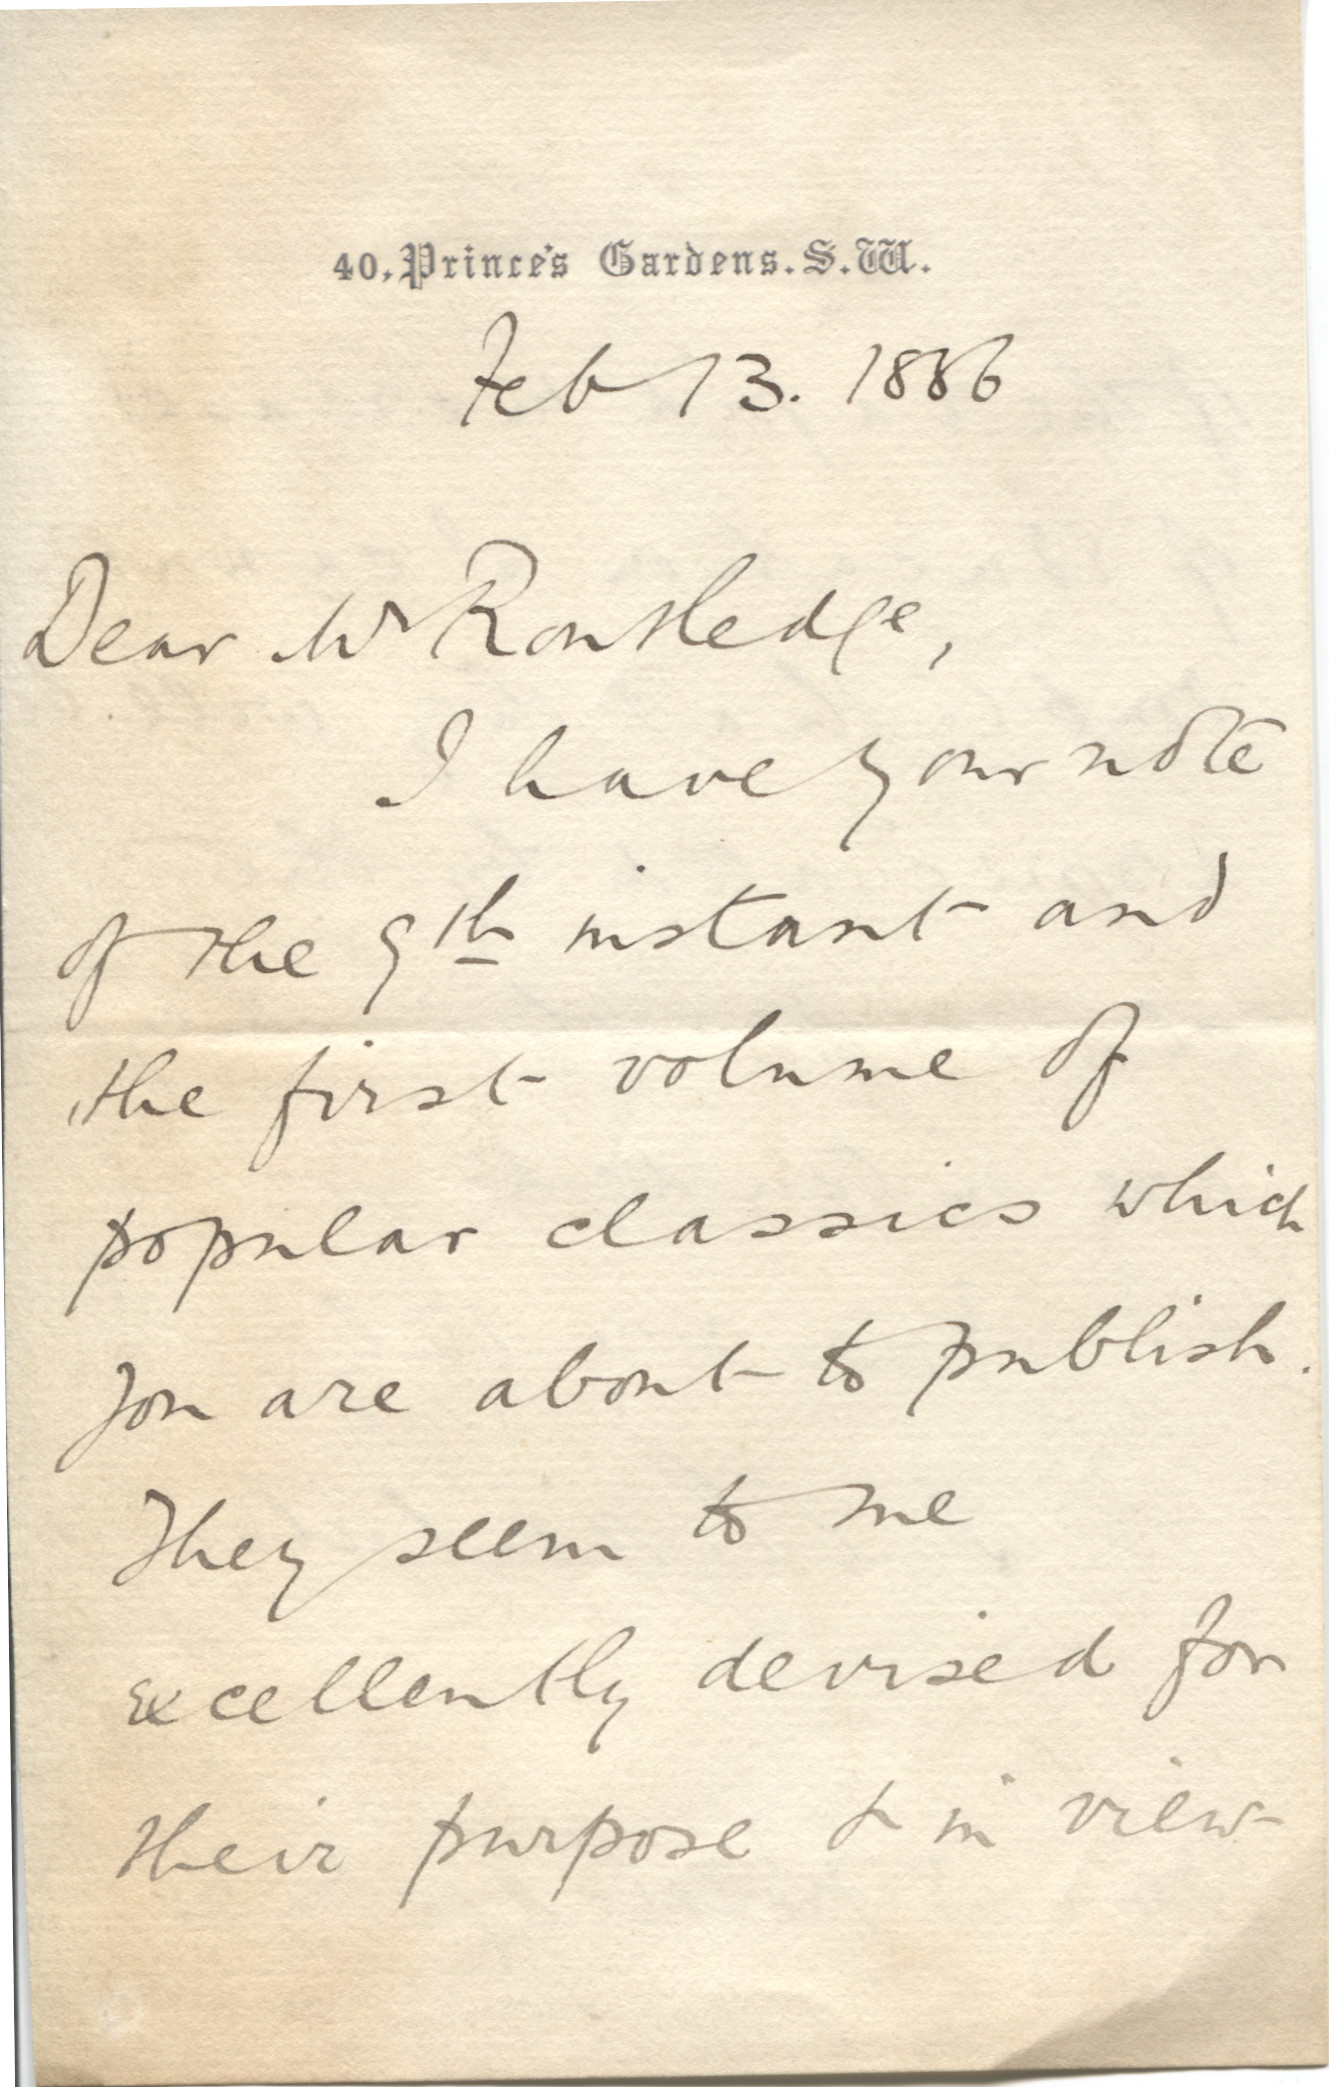 40, Prince's Gardens. S.W.
Feb 13. 1886
Dear Mr Routledge,
I have your note
of the 9th instant and
the first volume of
popular classics which
you are about to publish.
They seem to me
excellently devised for
their purpose & in view